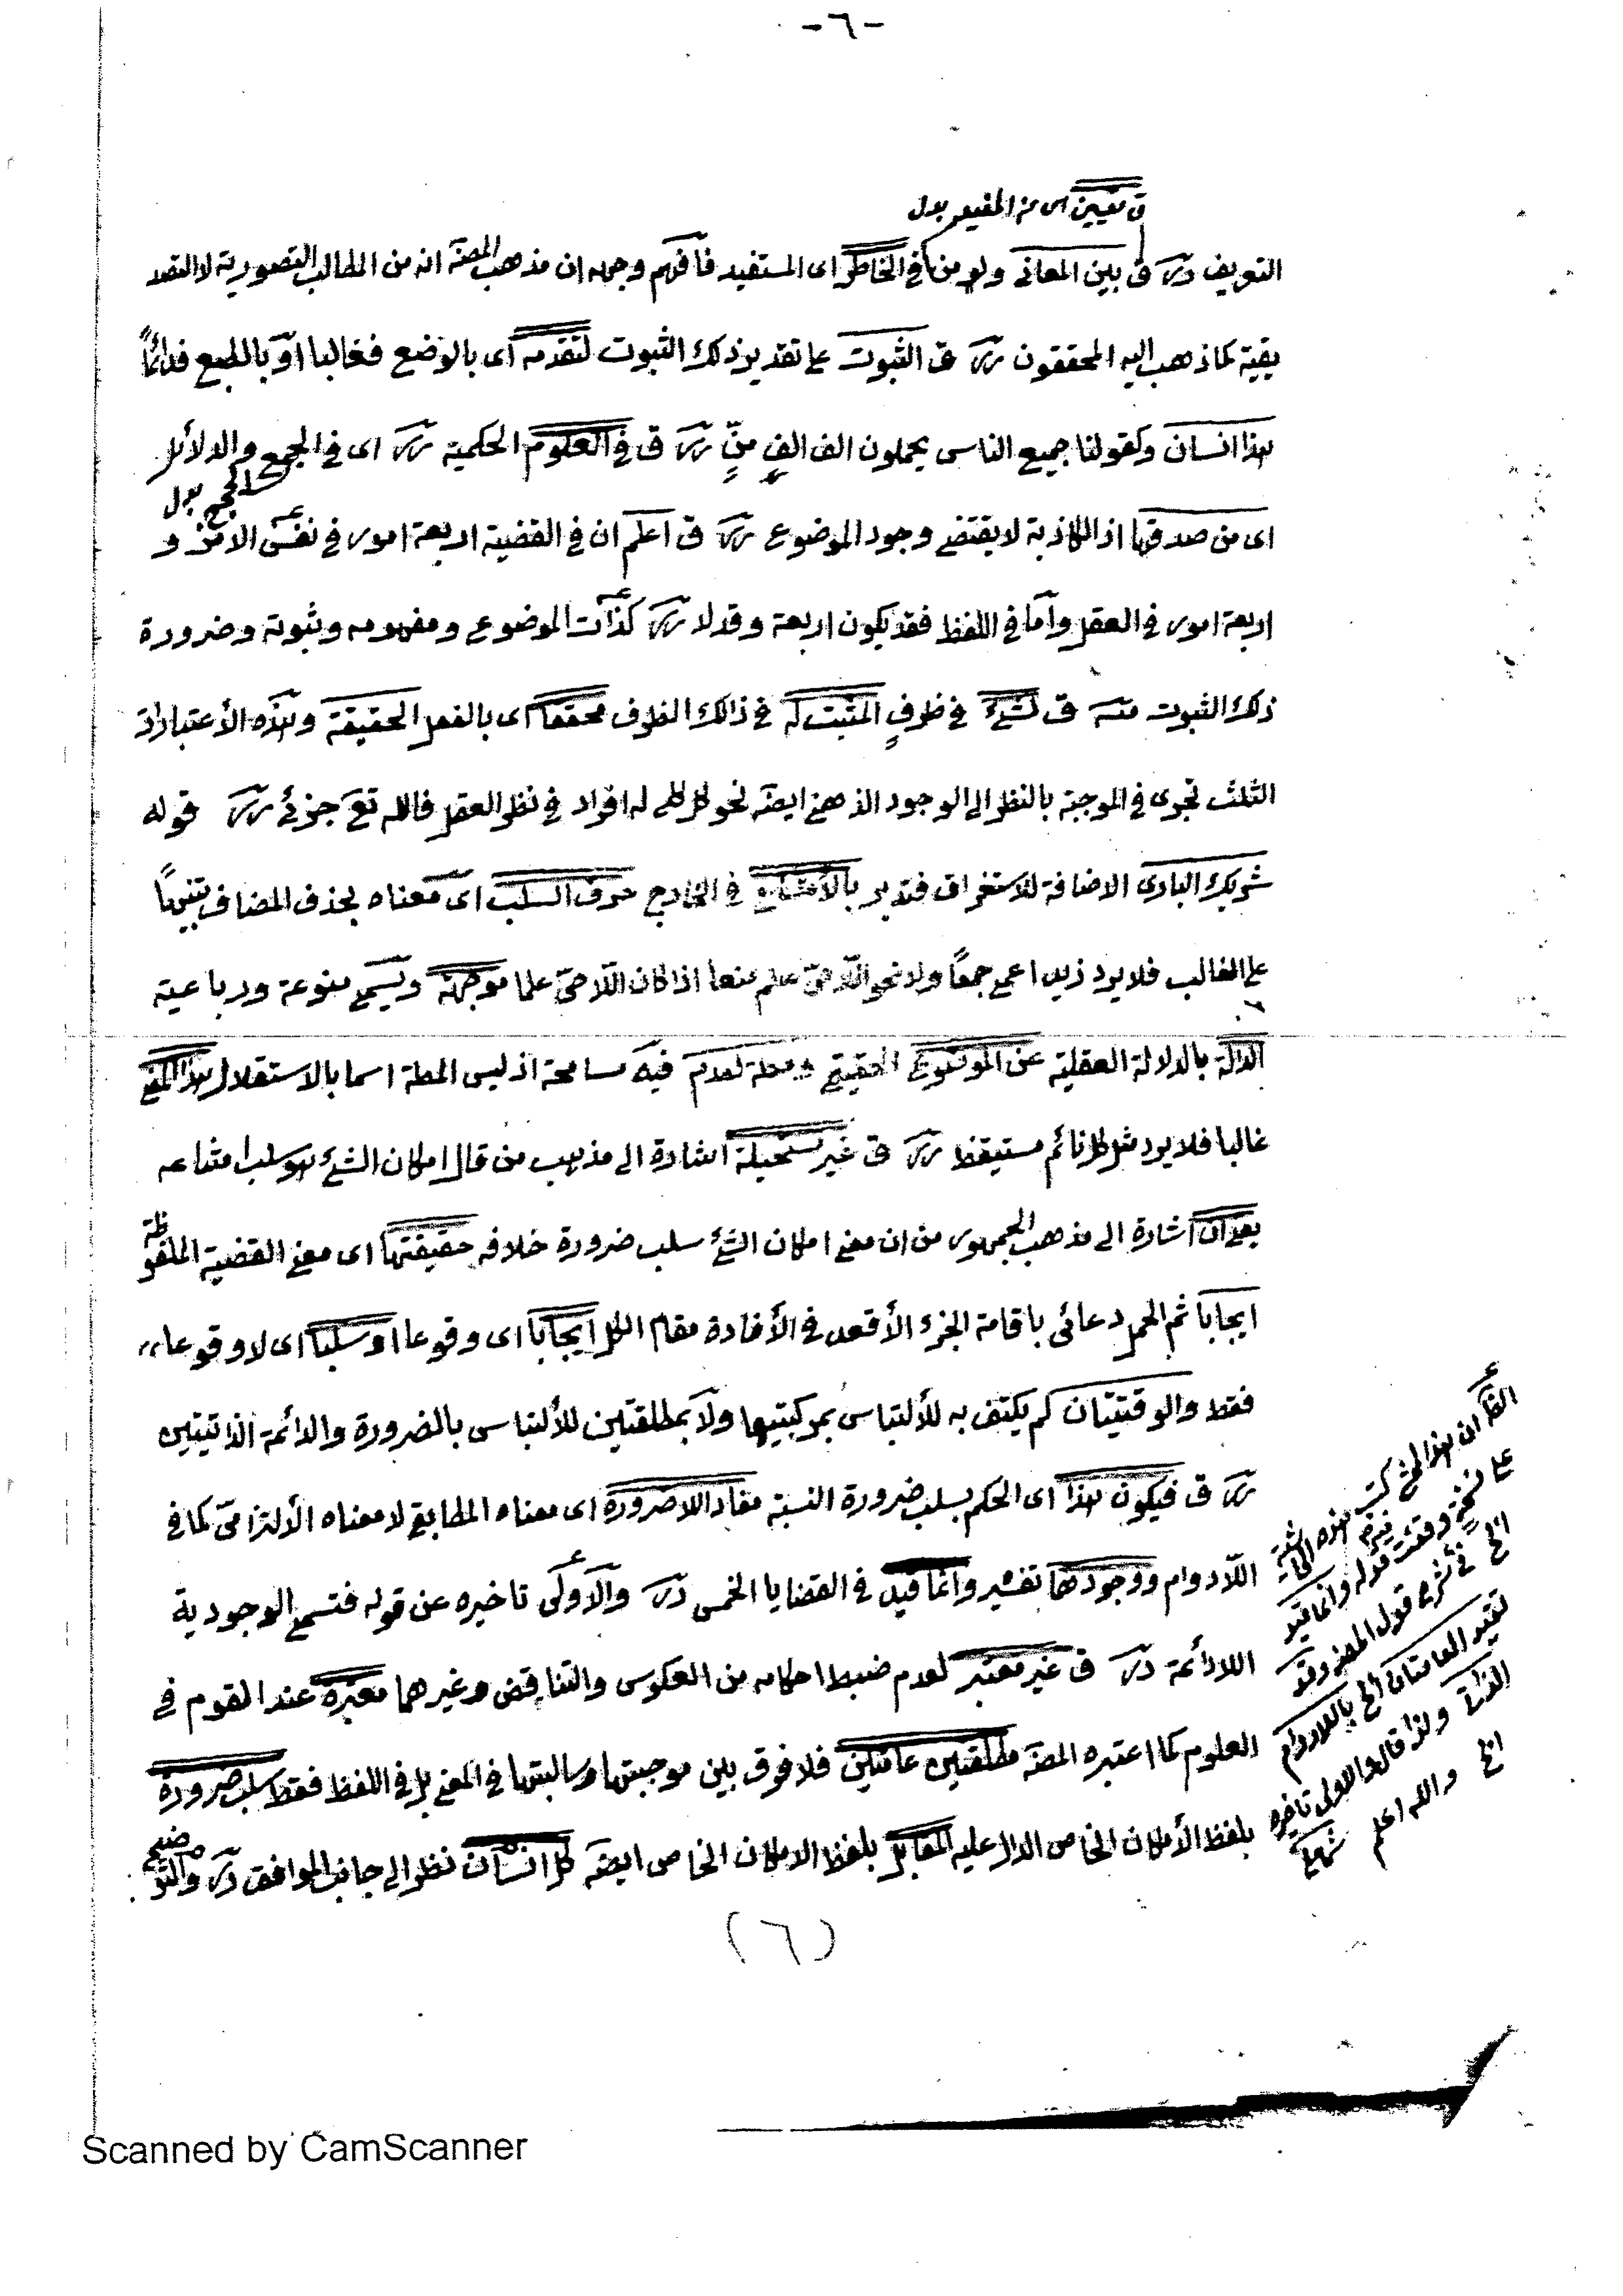 -٦-
ق تعيين اى من المفيد بدل
التعريف ق بين المعانى ولو من فى الخاطر اى المستفيد فافهم وجهه ان مذهب المصنه انه من المطالب التصورية لا التصد
يقية كما ذهب اليه المحققون ق الثبوت على تقدير ذلك الثبوت لتقدمه اى بالوضع فغالبا او بالطبع فدائماً
هذا انسان وكقولنا جميع الناس يحملون الف الفٍ منٍّ ق فى العلوم الحكمية اى فى الجمع والدلائل
الحجج بدل
اى من صدقها اذ الكاذبة لا يقتضى وجود الموضوع ق اعلم ان فى القضية اربعة امور فى نفس الامر و
اربعة امور فى العقل واما فى اللفظ فقد يكون اربعة وقد لا كذات الموضوع ومفهومه وثبوته وضرورة
ذلك الثبوت منه ق لشئ فى ظرفٍ المثبت له فى ذالك الظرف محققا اى بالفعل الحقيقة وهذه الأعتبارات
الثلث تجرى فى الموجبة بالنظر الى الوجود الذهنى ايضه نحو كل كلى له افراد فى نظر العقل فالله تع جزئى قوله
شريك البارى الاضافة للاستغراق فتدبر بالأمتناع فى الخارج حرف السلب اى معناه بحذف المضاف تنبيهاً
على الغالب فلا يرد زيد اعمى جمعاً ولا نحو اللاحىّ علم منعا اذا كان اللاحىّ علما موجهة ويسمى منوعة ورباعية
الدالة بالدلالة العقلية عن الموضوع الحقيقى لعدم فيه مسامحة اذ ليس المطة اسما بالاستقلال هذا المعنى
غالبا فلا يرد مثل كل نائم مستيقظ ق غير مستحيلة اشارة الى مذهب من قال امكان الشئ هو سلب امتناعه
بعد ان اشارة الى مذهب الجمهور من ان معنى امكان الشئ سلب ضرورة خلافه حقيقتها اى معنى القضية الملفوظة
ايجاباً ثم الحمل دعائى باقامة الجزء الأقعد فى الأفادة مقام الكل ايجاباً اى وقوعا او سلباً اى لا وقوعا
فقط والوقتيتان لم يكتف به للألتباس بمركبتيها ولا بمطلقتين للألتباس بالضرورة والدائمة الذاتيتين
ق فيكون هذا اى الحكم بسلب ضرورة النسبة مفاد اللاضرورة اى معناه المطابقى لا معناه الألتزامىّ كما فى
اللادوام ووجودهما تفسير وانما قيد فى القضايا الخمس والأولى تاخيره عن قوله فتسمى الوجودية
اللادائمة ق غير معتبر لعدم ضبط احكامه من العكوس والتناقض وغيرهما معتبرة عند القوم فى
العلوم كما اعتبره المصنه مطلقتين عامتين فلا فرق بين موجبتها وسالبتها فى المعنى بل فى اللفظ فقط سلب ضرورة
بلفظ الأمكان الخاص الدال عليه المقابل بلفظ الامكان الخاص ايضه كل انسان نظر الى جانب الموافق والتوضيح
ان هذا المحشى كتب هذه
على نسخة وقعت قوله وانما قيد
الخ فى شرح قول المصنه وقد
تقيد العامتان الخ باللادوام
الذاتى ولذا قال والاولى تاخيره
الخ والله اعلم
(٦)
Scanned by CamScanner